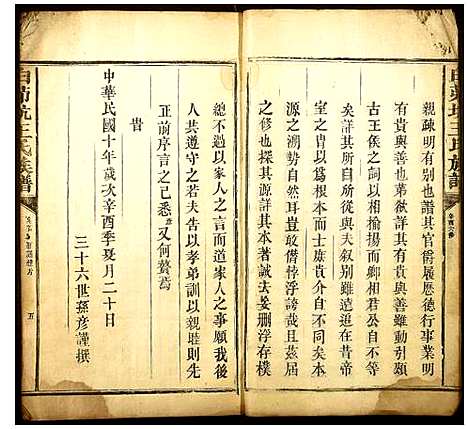 親疎有明別也譜其官爵履歷德行事業明
有貴與善也弟欲詳其有貴與善雖動引
古王侯之以相揄揚而卿相君公自不等
矣詳其所自所從與夫叙別雖遠追在昔帝
室之胄以爲根本而士庶貴介自不同矣本
源之溯勢自然耳豈敢僭悖浮于誇哉且茲屆
修也探其源詳其本著誠去妄刪浮存樸
總不過以家人之言而道家人之事願我後
人共遵守之若夫告以孝弟訓以親睦則先
正前序言之已悉又何贅焉
旹
中華民國十年歲次辛酉季夏月二十日
三十六世孫彥謹撰
王氏族譜
五
王氏族譜